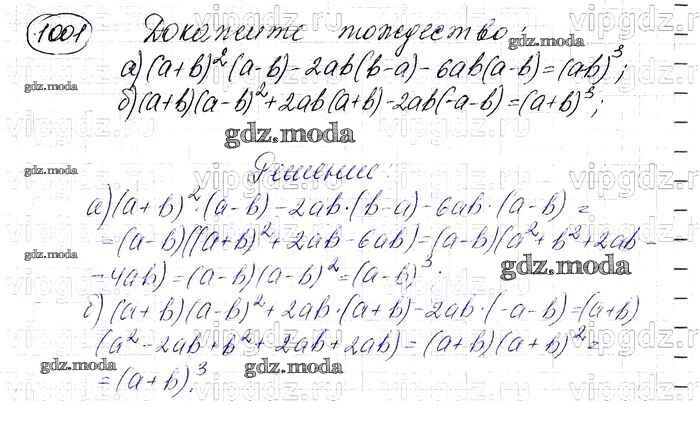 1001 Докажите тождество:
а) (a+b)² (a-b) - 2ab(b-a) - 6ab(a-b) = (a-b)³;
б) (a+b)(a-b)² + 2ab(a+b) - 2ab(-a-b) = (a+b)³;
Решение:
а) (a+b)²·(a-b) - 2ab·(b-a) - 6ab·(a-b) =
= (a-b)((a+b)² + 2ab - 6ab) = (a-b)(a² + b² + 2ab -
- 4ab) = (a-b)(a-b)² = (a-b)³.
б) (a+b)(a-b)² + 2ab·(a+b) - 2ab·(-a-b) = (a+b)
(a² - 2ab + b² + 2ab + 2ab) = (a+b)(a+b)² =
= (a+b)³.
gdz.moda
gdz.moda
gdz.moda
gdz.moda
gdz.moda
gdz.moda
gdz.moda
gdz.moda
gdz.moda
vipgdz.ru